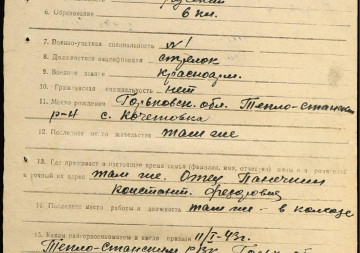 6. Образование 6 кл.
7. Военно-учетная специальность №1
8. Должностная квалификация стрелок
9. Военное звание красноарм.
10. Гражданская специальность нет
11. Место рождения Горьковск. обл. Тепло-Станский
р-н с. Кочетовка
12. Последнее место жительства там же
13. Где проживает в настоящее время семья (фамилия, имя, отчество) жены и родителей
и точный их адрес там же. Отец Панечкин
Констант. Федорович
14. Последнее место работы и должность там же - в колхозе
15. Каким райгорвоенкоматом и когда призван 11/I-43г.
Тепло-Станским РВК